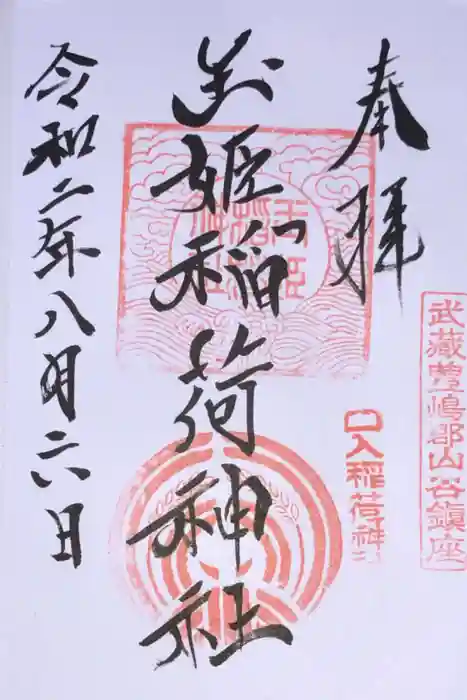 奉拝
武蔵豊嶋郡山谷鎮座
口入稲荷神社
玉姫稲荷神社
令和二年八月六日